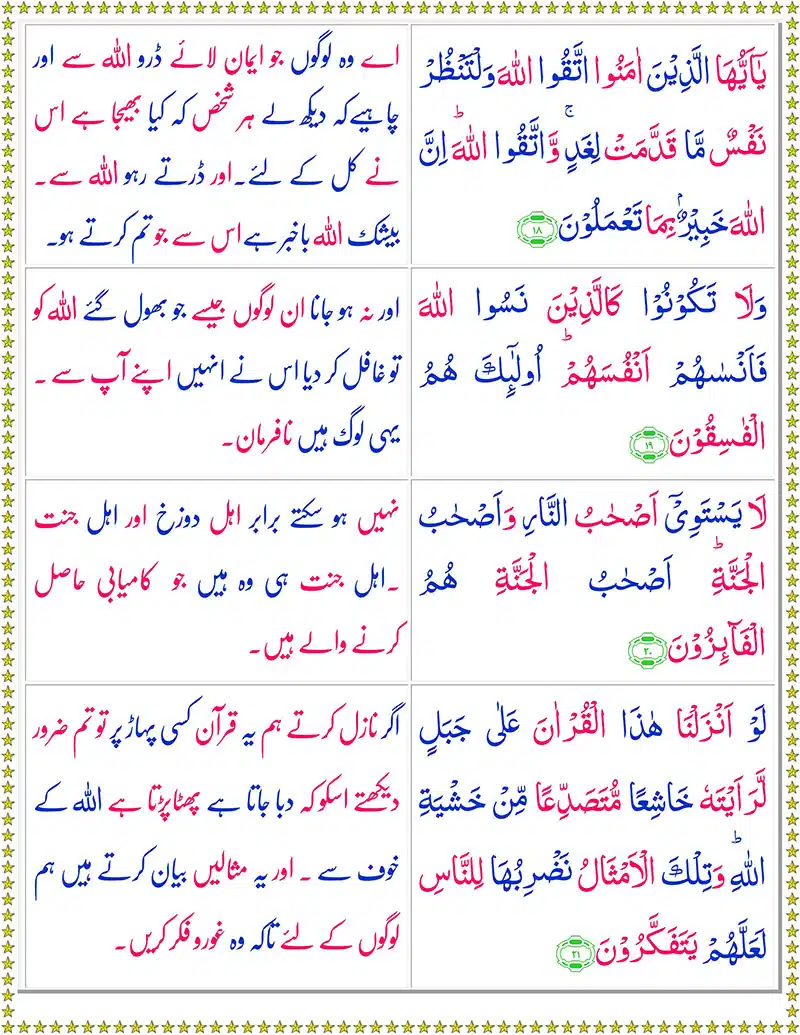 يٰۤاَيُّهَا الَّذِيْنَ اٰمَنُوا اتَّقُوا اللّٰهَ وَلْتَنْظُرْ
نَفْسٌ مَّا قَدَّمَتْ لِغَدٍ ۚ وَّاتَّقُوا اللّٰهَ ؕ اِنَّ
اللّٰهَ خَبِيْرٌۢ بِمَا تَعْمَلُوْنَ ۱۸
اے وہ لوگوں جو ایمان لائے ڈرو اللہ سے اور
چاہیے کہ دیکھ لے ہر شخص کہ کیا بھیجا ہے اس
نے کل کے لئے۔ اور ڈرتے رہو اللہ سے۔
بیشک اللہ باخبر ہے اس سے جو تم کرتے ہو۔
وَلَا تَكُوْنُوْا كَالَّذِيْنَ نَسُوا اللّٰهَ
فَاَنْسٰىهُمْ اَنْفُسَهُمْ ؕ اُولٰٓئِكَ هُمُ
الْفٰسِقُوْنَ ۱۹
اور نہ ہو جانا ان لوگوں جیسے جو بھول گئے اللہ کو
تو غافل کر دیا اس نے انہیں اپنے آپ سے ۔
یہی لوگ ہیں نافرمان۔
لَا يَسْتَوِيْۤ اَصْحٰبُ النَّارِ وَاَصْحٰبُ
الْجَنَّةِ ؕ اَصْحٰبُ الْجَنَّةِ هُمُ
الْفَآئِزُوْنَ ۲۰
نہیں ہو سکتے برابر اہل دوزخ اور اہل جنت
۔اہل جنت ہی وہ ہیں جو کامیابی حاصل
کرنے والے ہیں۔
لَوْ اَنْزَلْنَا هٰذَا الْقُرْاٰنَ عَلٰى جَبَلٍ
لَّرَاَيْتَهٗ خَاشِعًا مُّتَصَدِّعًا مِّنْ خَشْيَةِ
اللّٰهِ ؕ وَتِلْكَ الْاَمْثَالُ نَضْرِبُهَا لِلنَّاسِ
لَعَلَّهُمْ يَتَفَكَّرُوْنَ ۲۱
اگر نازل کرتے ہم یہ قرآن کسی پہاڑ پر تو تم ضرور
دیکھتے اسکو کہ دبا جاتا ہے پھٹا پڑتا ہے اللہ کے
خوف سے ۔ اور یہ مثالیں بیان کرتے ہیں ہم
لوگوں کے لئے تاکہ وہ غور و فکر کریں۔